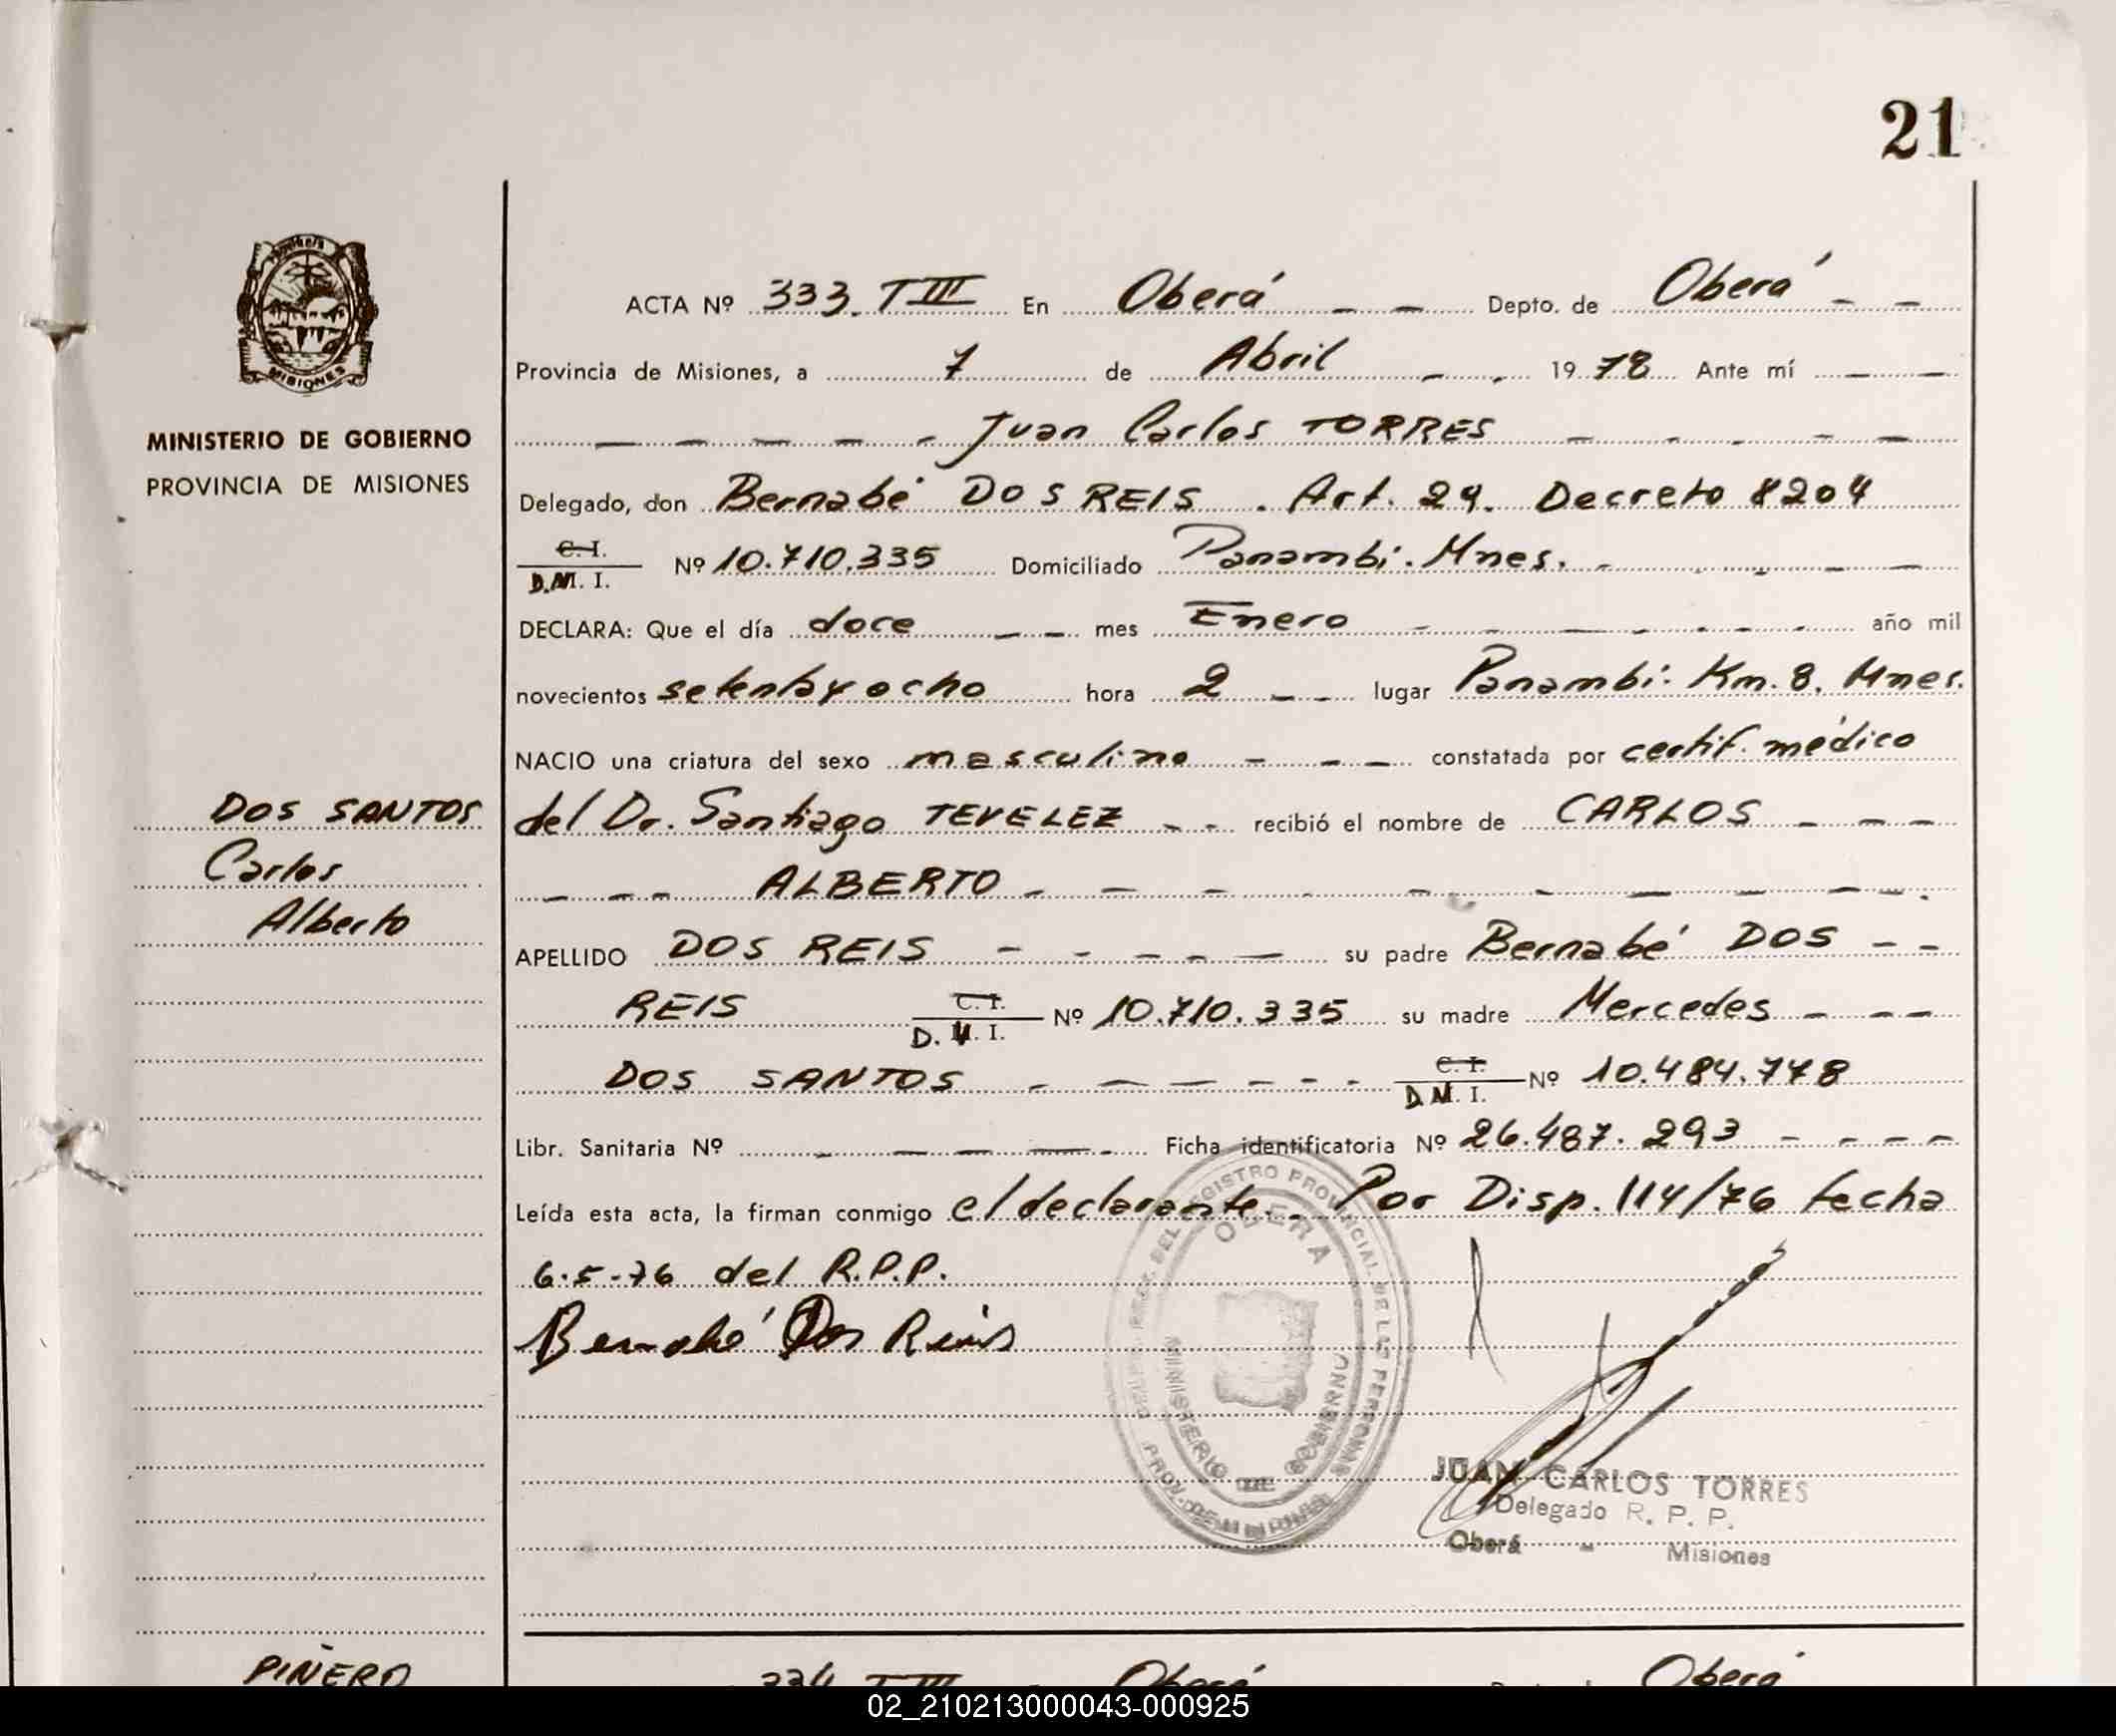 21
MISIONES
MINISTERIO DE GOBIERNO
PROVINCIA DE MISIONES
ACTA Nº 333. T III En Oberá Depto. de Oberá
Provincia de Misiones, a 7 de Abril 1978 Ante mí
Juan Carlos TORRES
Delegado, don Bernabé DOS REIS. Art. 29. Decreto 8204
C. I.
D.M. I. Nº 10.710.335 Domiciliado Panambí. Mnes.
DECLARA: Que el día doce mes Enero año mil
novecientos setenta y ocho hora 2 lugar Panambí: Km. 8. Mnes.
NACIO una criatura del sexo masculino constatada por certif. médico
DOS SANTOS
Carlos
Alberto
del Dr. Santiago TEVELEZ recibió el nombre de CARLOS
ALBERTO
APELLIDO DOS REIS su padre Bernabé DOS
REIS C. I. D. M. I. Nº 10.710.335 su madre Mercedes
DOS SANTOS C. I. D. M. I. Nº 10.484.748
Libr. Sanitaria Nº Ficha identificatoria Nº 26.487.293
Leída esta acta, la firman conmigo el declarante. Por Disp. 114/76 fecha
6.5.76 del R.P.P.
Bernabé Dos Reis
REGISTRO PROVINCIAL DE LAS PERSONAS
OBERA
MINISTERIO DE GOBIERNO
JUAN CARLOS TORRES
Delegado R. P. P.
Oberá - Misiones
PIÑERO
334 T III Oberá Oberá
02_210213000043-000925